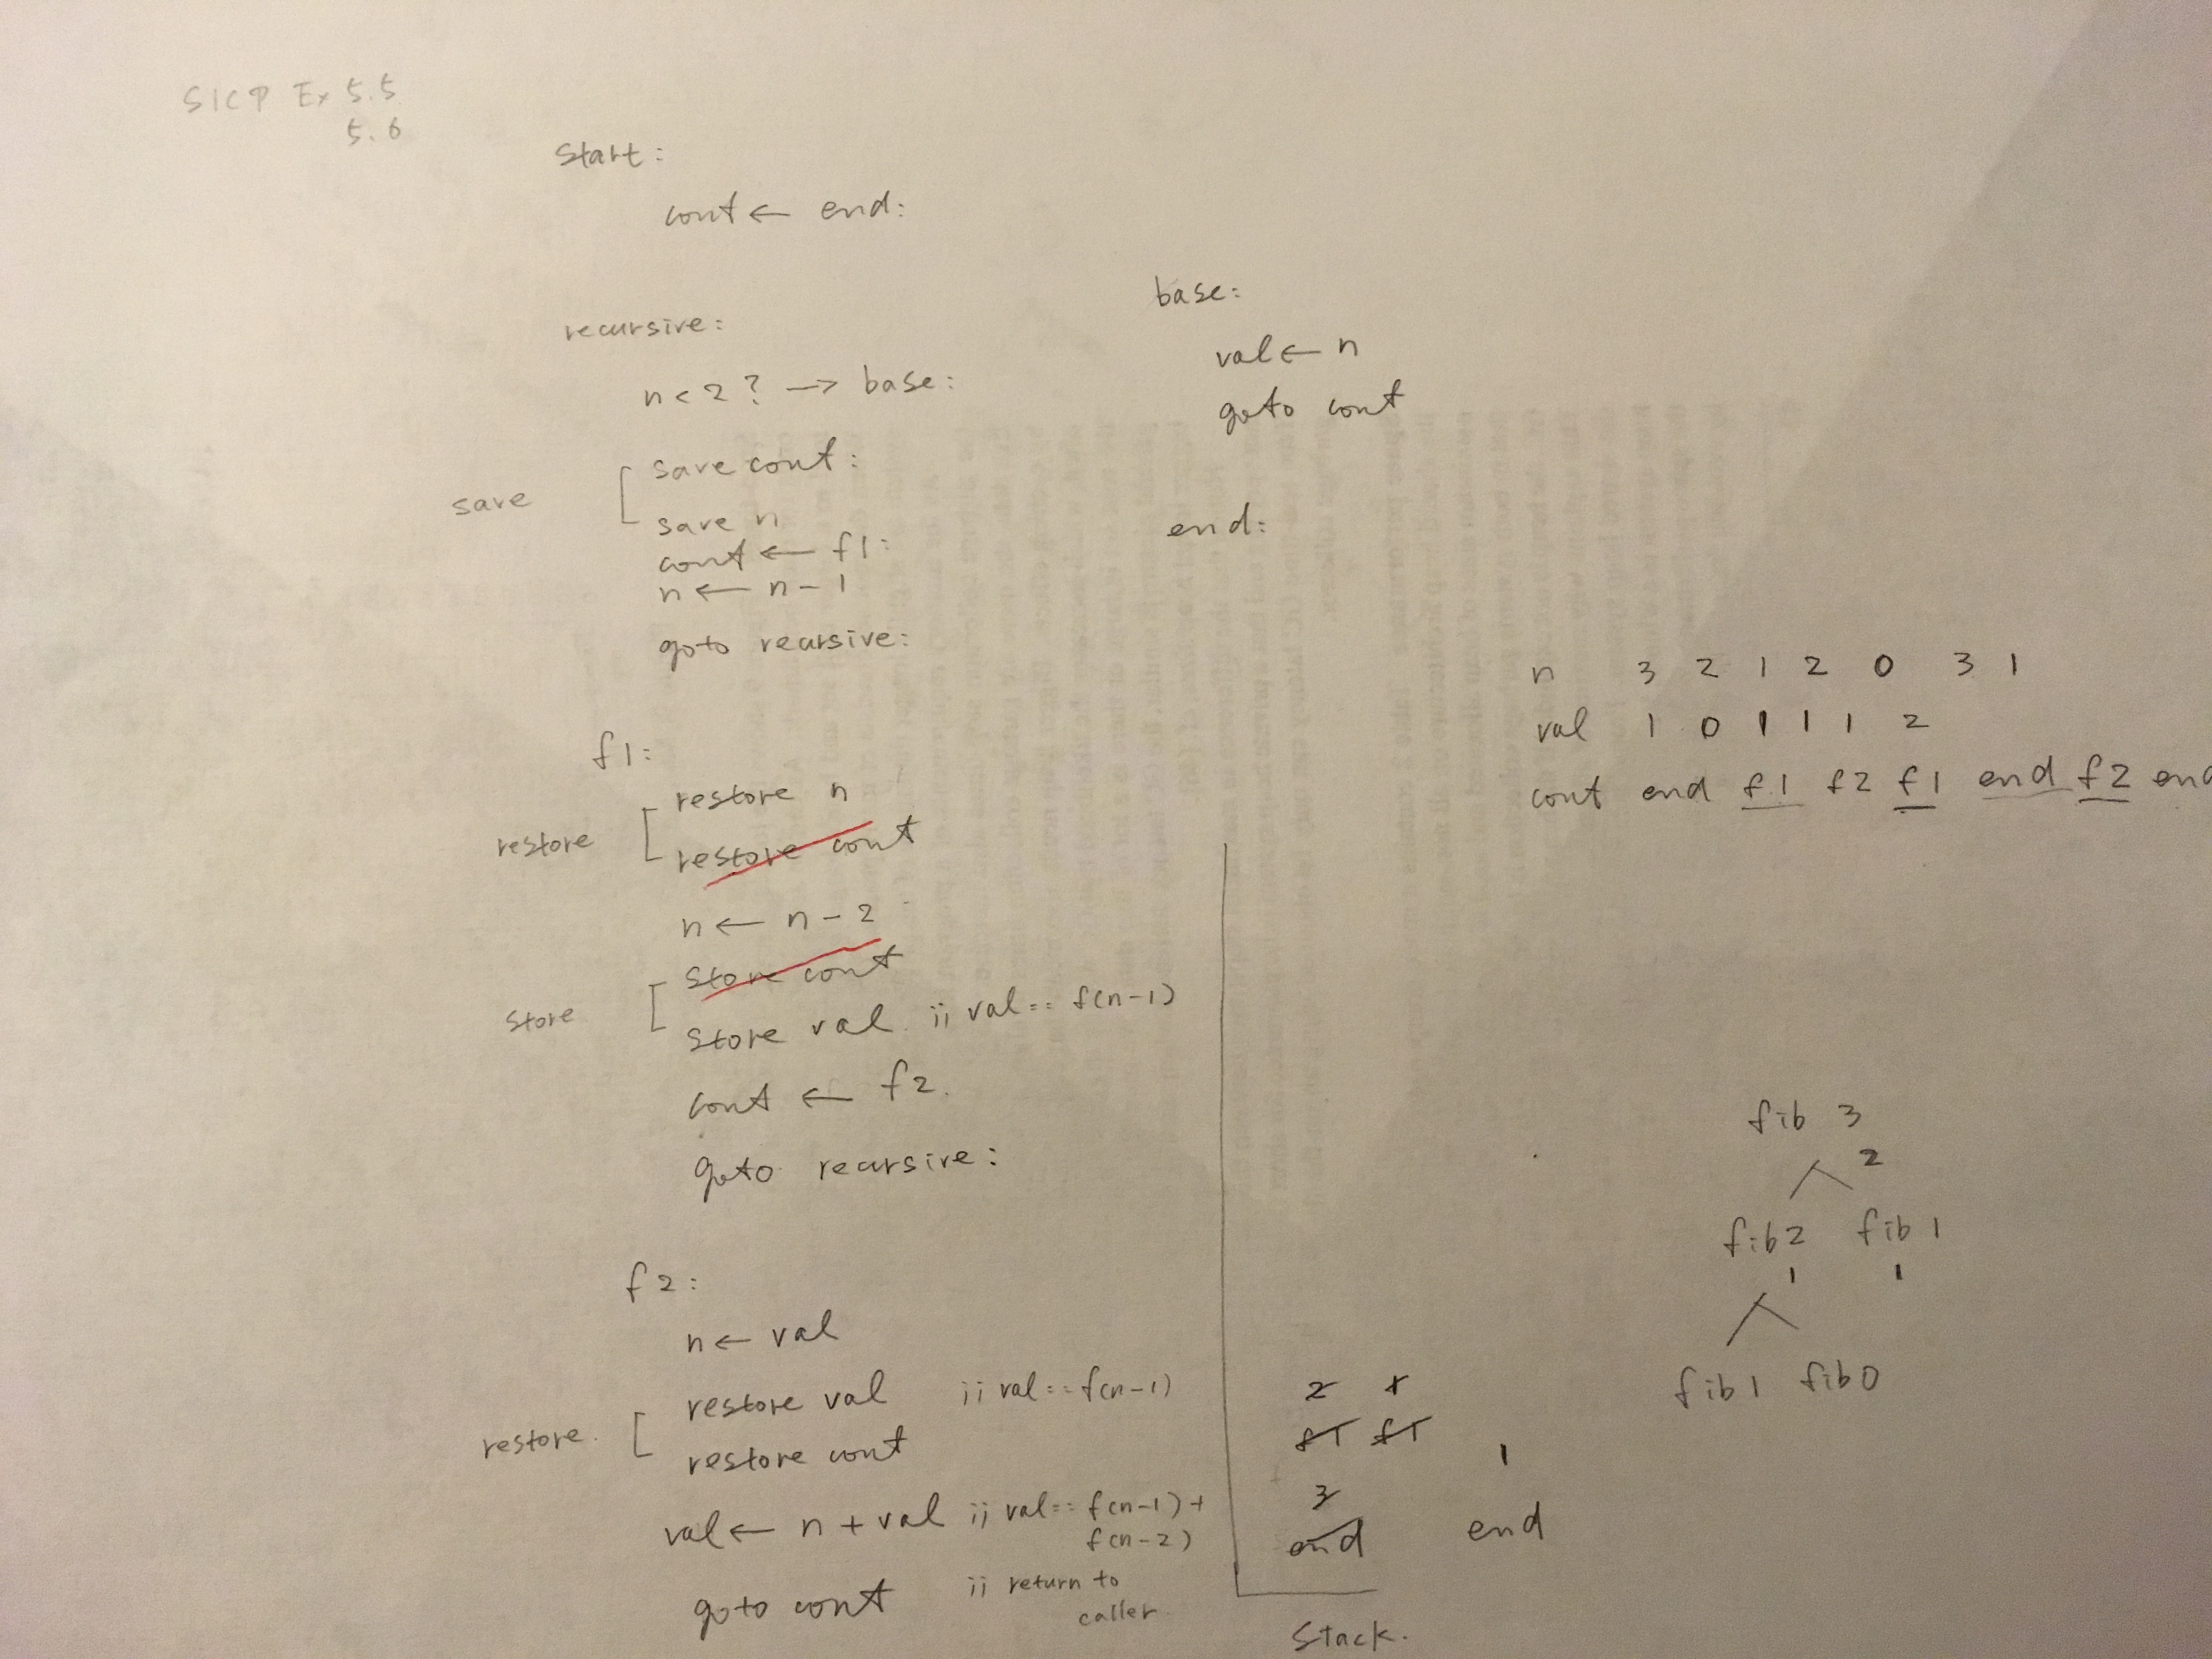 SICP Ex 5.5
5.6
Start:
cont ← end:
recursive:
n < 2 ? → base:
save
save cont:
save n
cont ← f1:
n ← n - 1
goto recursive:
f1:
restore
restore n
restore cont
n ← n - 2
store
store cont
store val ;; val == f(n-1)
cont ← f2.
goto recursive:
f2:
n ← val
restore.
restore val ;; val == f(n-1)
restore cont
val ← n + val ;; val == f(n-1) +
f(n-2)
goto cont ;; return to
caller.
base:
val ← n
goto cont
end:
n 3 2 1 2 0 3 1
val 1 0 1 1 1 2
cont end f1 f2 f1 end f2 end
fib 3
2
fib2 fib 1
1 1
fib 1 fib 0
2 1
f1 f1
1
3
end end
Stack.